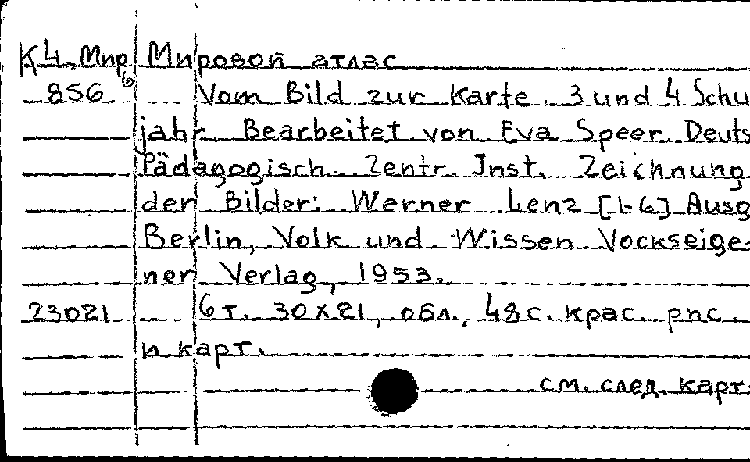 К4, Мир Мировой атлас
856 Vom Bild zur Karte. 3 und 4 Schu
jahr. Bearbeitet von Eva Speer. Deuts
Pädagogisch. Zentr. Inst. Zeichnung
der Bilder: Werner Lenz [1-6] Ausg
Berlin, Volk und Wissen Vockseige-
ner Verlag, 1953.
23021 6 т. 30x21, обл., 48 с. крас. рис.
и карт.
см. след. карт.